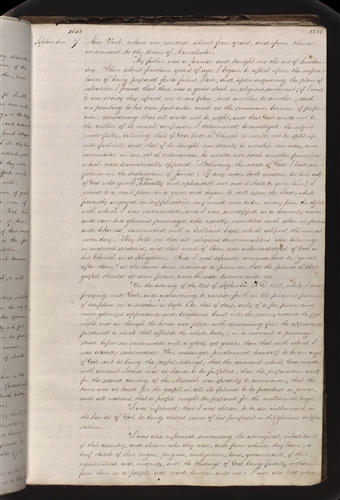 1823 1286
September 7 New York, where we resided about four years, and from thence
we removed to the town of Manchester.
My father was a farmer and taught me the art of husban
dry. When about fourteen years of age I began to reflect upon the importance
of being prepared for a future state, and upon enquiring the plan of
salvation I found that there was a great clash in religious sentiment; if I went
to one society they referred me to one plan, and another to another; each
one pointing to his own particular creed as the summum bonum of perfec
tion: considering that all could not be right, and that God could not be
the author of so much confusion I determined to investigate the subject
more fully, believing that if God had a Church it would not be split up
into factions, and that if he taught one society to worship one way, and
administer in one set of ordinances, he would not teach another principles
which were diametrically opposed. Believing the word of God I had con
fidence in the declaration of James; If any man lack wisdom let him ask
of God who giveth to all men liberally and upbraideth not and it shall be given him; I
retired to a secret place in a grove and began to call upon the Lord, while
fervently engaged in supplication my mind was taken away from the objects
with which I was surrounded, and I was enwrapped in a heavenly vision
and saw two glorious personages who exactly resembled each other in features
and likeness, surrounded with a brilliant light which eclipsed the sun at
noon-day. They told me that all religious denominations were believing
in incorrect doctrines, and that none of them was acknowledged of God as
his Church and Kingdom. And I was expressly commanded to "go not
after them," at the same time receiving a promise that the fulness of the
gospel should at some future time be made known unto me.
On the evening of the 21st of September A D 1823, while I was
praying unto God, and endeavoring to exercise faith in the precious promises
of Scripture on a sudden a light like that of day, only of a far purer and
more glorious appearance and brightness burst into the room, indeed the first
sight was as though the house was filled with consuming fire; the appearance
produced a shock that affected the whole body; in a moment a personage
stood before me surrounded with a glory yet greater than that with which I
was already surrounded. This messenger proclaimed himself to be an angel
of God sent to bring the joyful tidings, that the covenant which God made
with ancient Israel was at hand to be fulfilled, that the preparatory work
for the second coming of the Messiah was speedily to commence; that the
time was at hand for the gospel in all its fulness to be preached in power,
unto all nations that a people might be prepared for the millennial reign.
I was informed that I was chosen to be an instrument in
the hands of God to bring about some of his purposes in this glorious dispen
sation.
I was also informed concerning the aboriginal inhabitants
of this country, and shewn who they were, and from whence they came; a
brief sketch of their origin, progress, civilization, laws, governments, of their
righteousness and iniquity, and the blessings of God being finally withdrawn
from them as a people was made known unto me: I was also told where